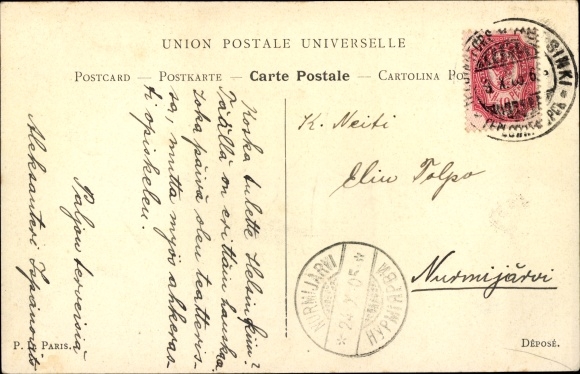 UNION POSTALE UNIVERSELLE
POSTCARD — POSTKARTE — Carte Postale — CARTOLINA
Koska tulette Helsinkiin?
Täällä on erittäin hauskaa.
Joka päivä olen teatteris-
sa, mutta myös ahkeras-
ti opiskelen.
Paljon terveisiä
Aleksanteri
K. Neiti
Elin Tolpo
Nurmijärvi
NURMIJÄRVI
24.X.05
НУРМИЯРВИ
SINKI
P. PARIS.
DÉPOSÉ.